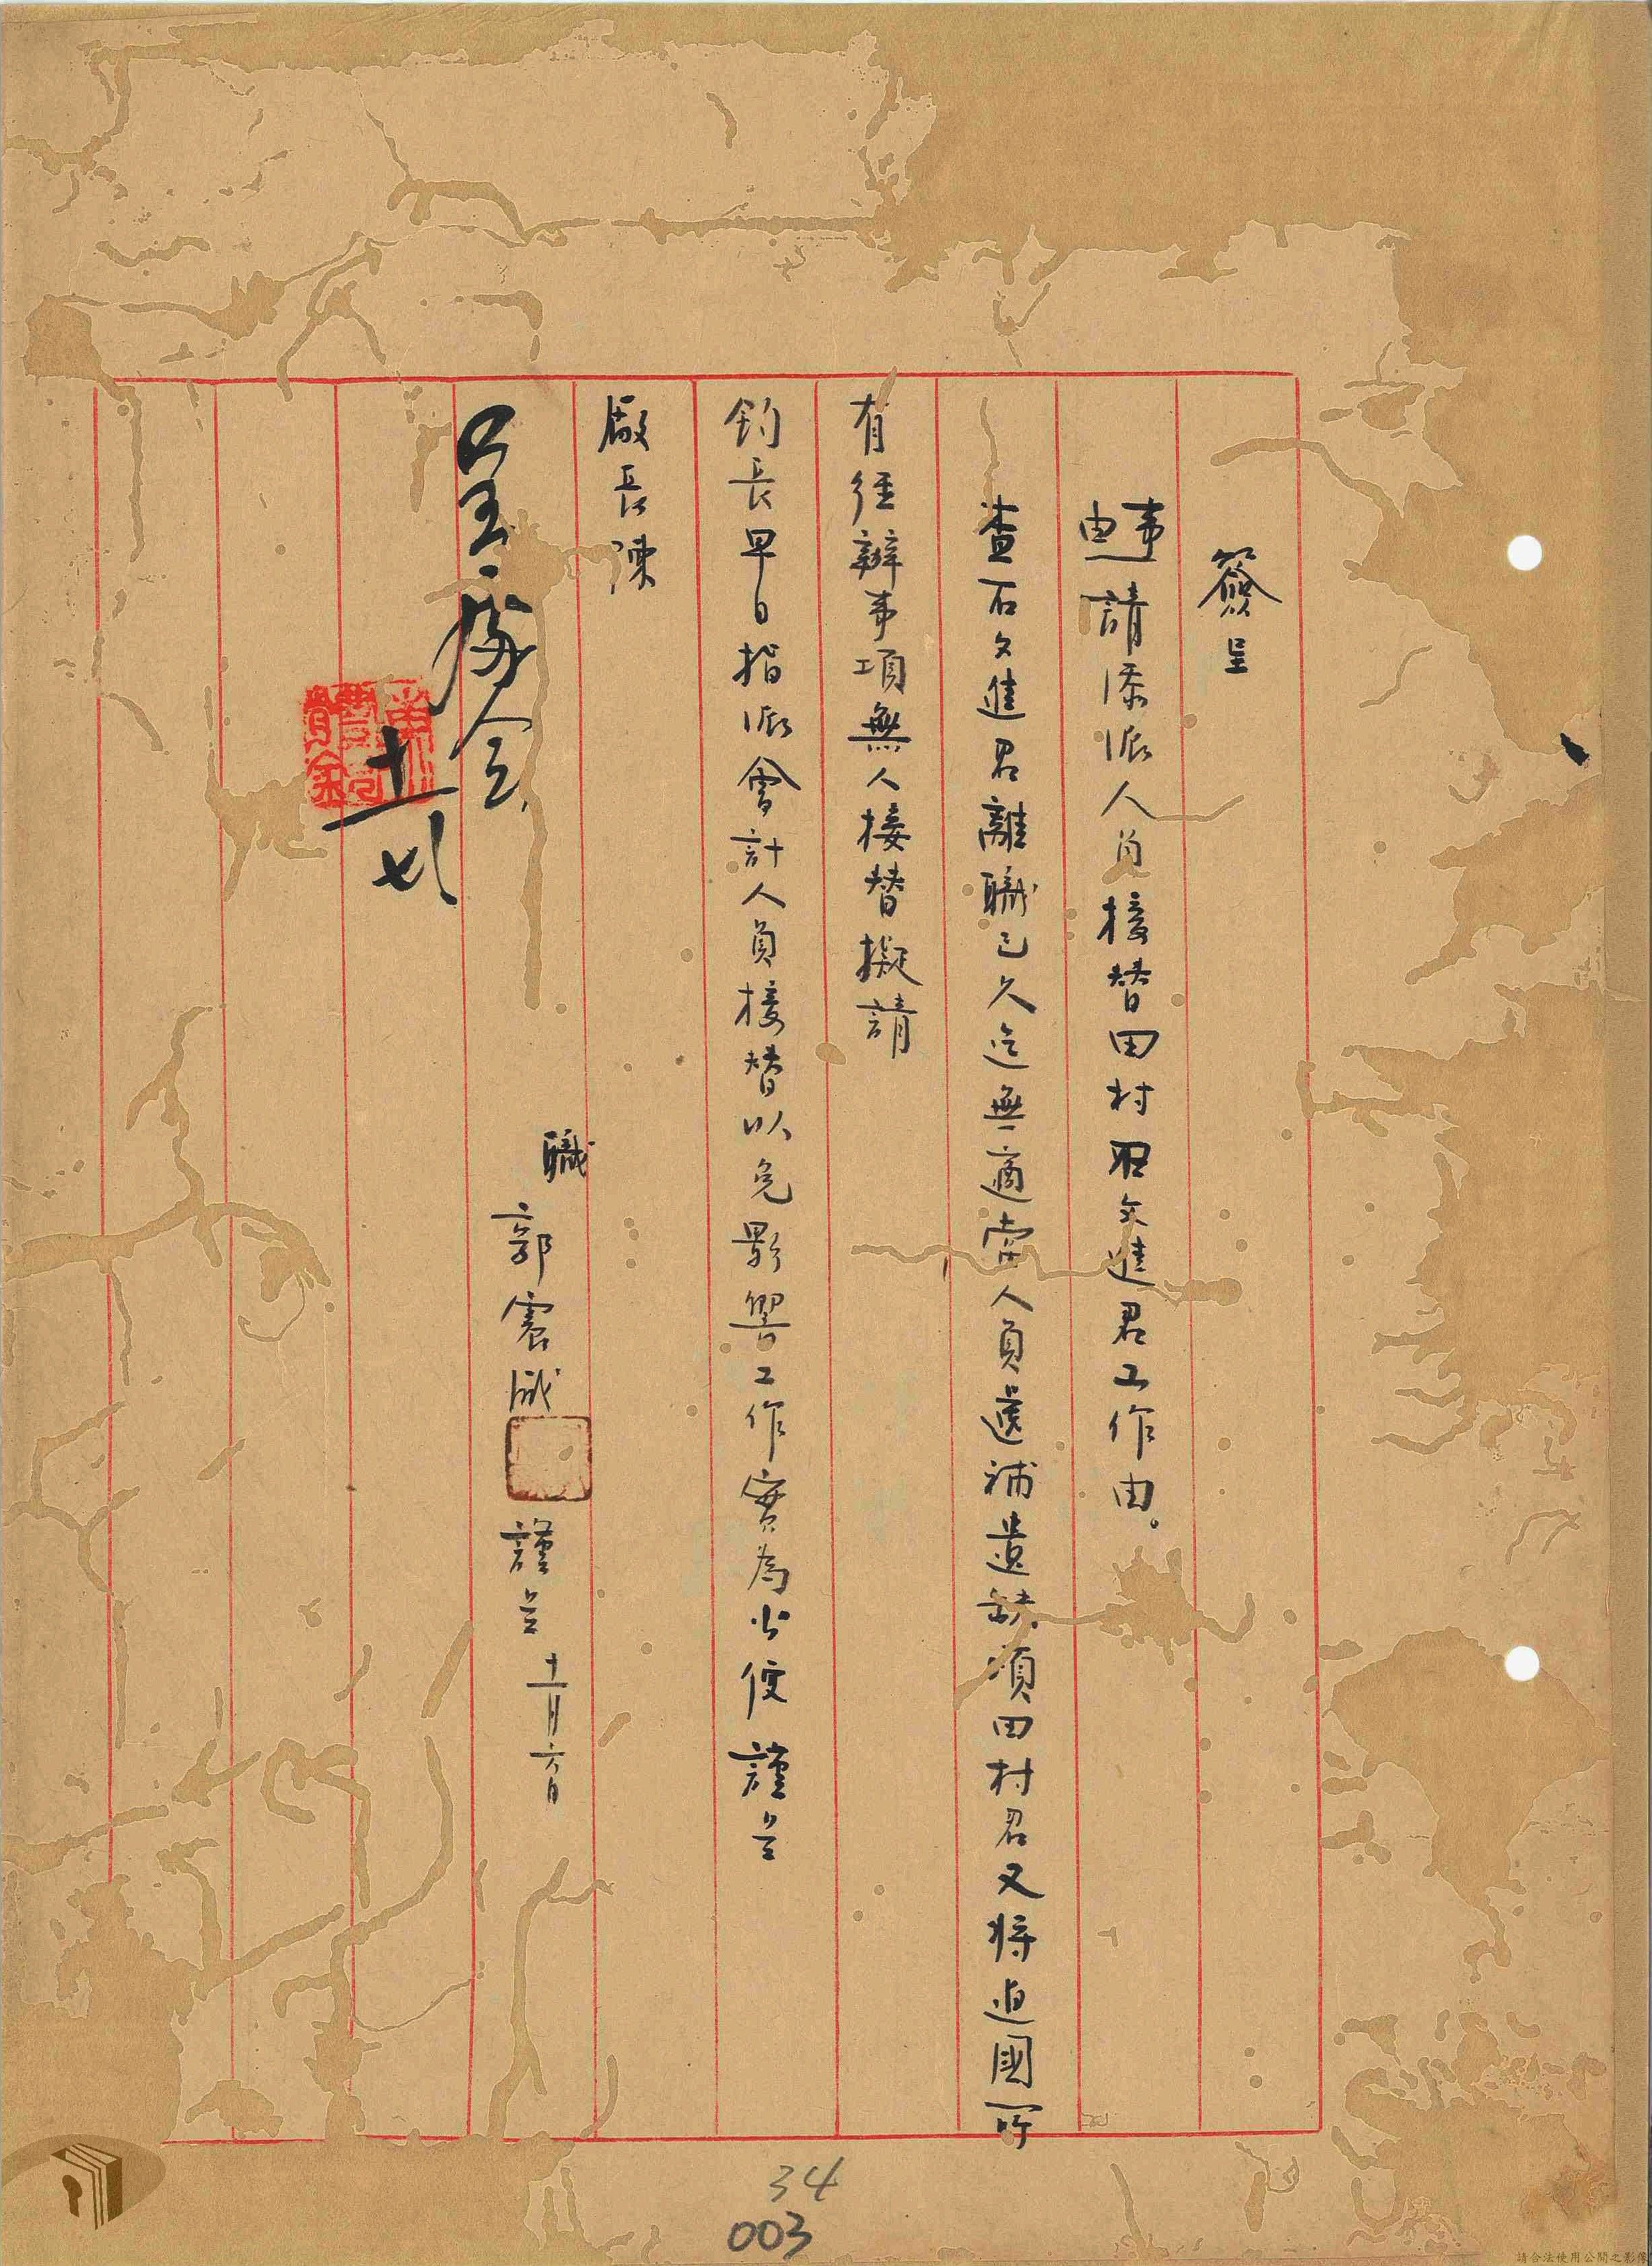 簽呈
事由 請添派人員接替田村石文進君工作由。
查石文進君離職已久迄無適當人員遞補遺缺頃田村君又將返國所
有經辦事項無人接替擬請
鈞長早日指派會計人員接替以免影響工作實為公便 謹呈
廠長陳
職
郭震成 謹呈 十一月六日
呈處令
十一
七
34
003
請合法使用公開之影像